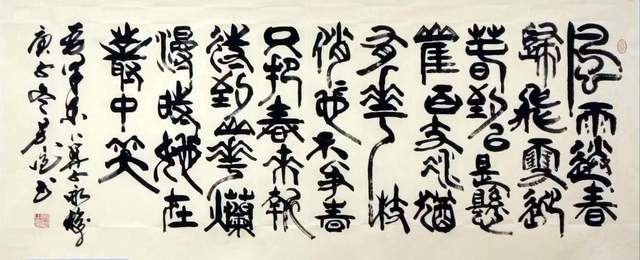 風雨送春
歸飛雪迎
春到已是懸
崖百丈冰猶
有華枝
俏也不爭春
只把春來報
待到山華爛
漫時她在
叢中笑
澤东卜算子詠梅
庚子冬